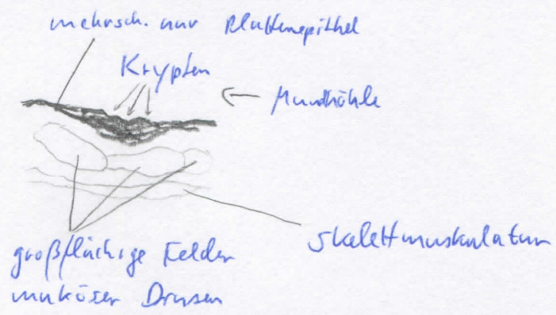 mehrsch. unv Plattenepithel
Krypten
Mundhöhle
Skelettmuskulatur
großflächige Felder
muköser Drüsen